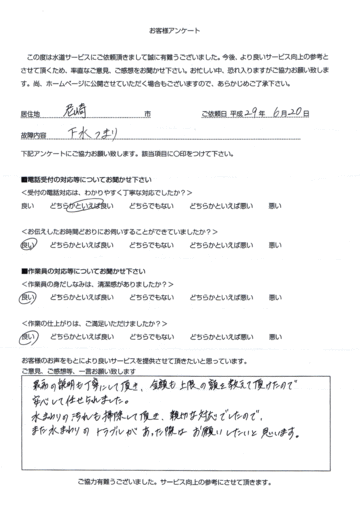 お客様アンケート
この度は水道サービスにご依頼頂きまして誠に有難うございました。今後、より良いサービス向上の参考と
させて頂くため、率直なご意見、ご感想をお聞かせ下さい。お忙しい中、恐れ入りますがご協力お願い致しま
す。尚、ホームページに公開させていただく場合もございますので、あらかじめご了承下さい。
居住地 尼崎 市 ご依頼日 平成 29年 6月 20日
故障内容 下水つまり
下記アンケートにご協力お願い致します。該当項目に○印をつけて下さい。
■電話受付の対応等についてお聞かせ下さい
<受付の電話対応は、わかりやすく丁寧な対応でしたか？>
良い どちらかといえば良い どちらでもない どちらかといえば悪い 悪い
<お伝えしたお時間どおりにお伺いすることができていましたか？>
良い どちらかといえば良い どちらでもない どちらかといえば悪い 悪い
■作業員の対応等についてお聞かせ下さい
<作業員の身だしなみは、清潔感がありましたか？>
良い どちらかといえば良い どちらでもない どちらかといえば悪い 悪い
<作業の仕上がりは、ご満足いただけましたか？>
良い どちらかといえば良い どちらでもない どちらかといえば悪い 悪い
お客様のお声をもとにより良いサービスを提供させて頂きたいと思っています。
ご意見、ご感想等、一言お願い致します
最初の説明も丁寧にして頂き、金額も上限の額を教えて頂けたので
安心して任せられました。
水まわりの汚れも掃除して頂き、親切な対応でしたので、
また水まわりのトラブルがあった際はお願いしたいと思います。
ご協力有難うございました。サービス向上の参考にさせて頂きます。